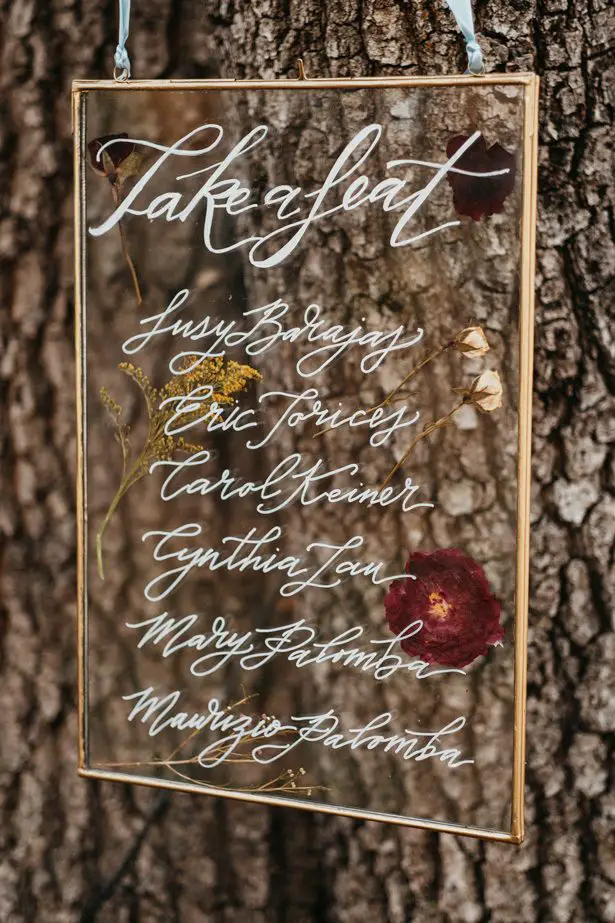 Take a seat
Susy Barajas
Eric Torices
Carol Keiner
Cynthia Lau
Mary Palomba
Maurizio Palomba